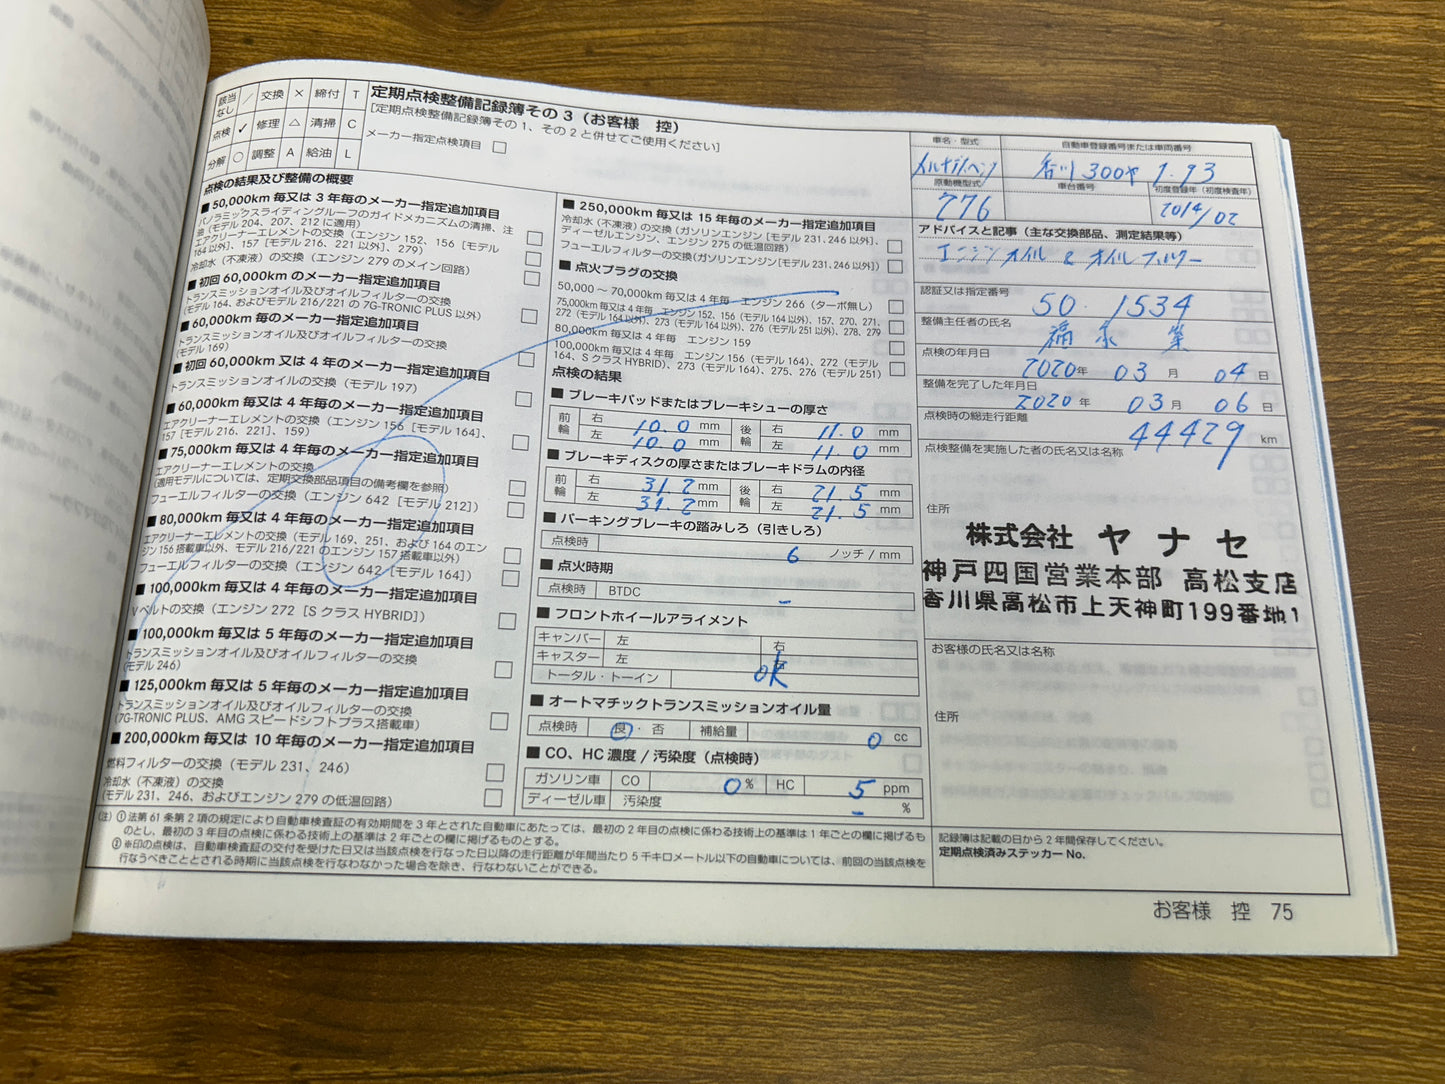 該当なし ／ 交換 × 締付 T
点検 ✓ 修理 △ 清掃 C
分解 ○ 調整 A 給油 L
定期点検整備記録簿その3（お客様　控）
[定期点検整備記録簿その1、その2と併せてご使用ください]
メーカー指定点検項目 □
点検の結果及び整備の概要
■ 50,000km 毎又は 3 年毎のメーカー指定追加項目
パノラミックスライディングルーフのガイドメカニズムの清掃、注
油（モデル 204、207、212 に適用）
エアクリーナーエレメントの交換（エンジン 152、156［モデル
164 以外］、157［モデル 216、221 以外］、279）
冷却水（不凍液）の交換（エンジン 279 のメイン回路）
■ 初回 60,000km のメーカー指定追加項目
トランスミッションオイル及びオイルフィルターの交換
（モデル 164、およびモデル 216/221 の 7G-TRONIC PLUS 以外）
■ 60,000km 毎のメーカー指定追加項目
トランスミッションオイル及びオイルフィルターの交換
（モデル 169）
■ 初回 60,000km 又は 4 年毎のメーカー指定追加項目
トランスミッションオイルの交換（モデル 197）
■ 60,000km 毎又は 4 年毎のメーカー指定追加項目
エアクリーナーエレメントの交換（エンジン 156［モデル 164］、
157［モデル 216、221］、159）
■ 75,000km 毎又は 4 年毎のメーカー指定追加項目
エアクリーナーエレメントの交換
（適用モデルについては、定期交換部品項目の備考欄を参照）
フューエルフィルターの交換（エンジン 642［モデル 212］）
■ 80,000km 毎又は 4 年毎のメーカー指定追加項目
エアクリーナーエレメントの交換（モデル 169、251、および 164 のエン
ジン 156 搭載車以外、モデル 216/221 のエンジン 157 搭載車以外）
フューエルフィルターの交換（エンジン 642［モデル 164］）
■ 100,000km 毎又は 4 年毎のメーカー指定追加項目
V ベルトの交換（エンジン 272［S クラス HYBRID］）
■ 100,000km 毎又は 5 年毎のメーカー指定追加項目
トランスミッションオイル及びオイルフィルターの交換
（モデル 246）
■ 125,000km 毎又は 5 年毎のメーカー指定追加項目
トランスミッションオイル及びオイルフィルターの交換
（7G-TRONIC PLUS、AMG スピードシフトプラス搭載車）
■ 200,000km 毎又は 10 年毎のメーカー指定追加項目
燃料フィルターの交換（モデル 231、246）
冷却水（不凍液）の交換
（モデル 231、246、およびエンジン 279 の低温回路）
■ 250,000km 毎又は 15 年毎のメーカー指定追加項目
冷却水（不凍液）の交換（ガソリンエンジン［モデル 231、246 以外］、
ディーゼルエンジン、エンジン 275 の低温回路）
フューエルフィルターの交換（ガソリンエンジン［モデル 231、246 以外］）
■ 点火プラグの交換
50,000 ～ 70,000km 毎又は 4 年毎　エンジン 266（ターボ無し）
75,000km 毎又は 4 年毎　エンジン 152、156（モデル 164 以外）、157、270、271、
272（モデル 164 以外）、273（モデル 164 以外）、276（モデル 251 以外）、278、279
80,000km 毎又は 4 年毎　エンジン 159
100,000km 毎又は 4 年毎　エンジン 156（モデル 164）、272（モデル
164、S クラス HYBRID）、273（モデル 164）、275、276（モデル 251）
点検の結果
■ ブレーキパッドまたはブレーキシューの厚さ
前輪 右 10.0 mm 後輪 右 11.0 mm
左 10.0 mm 左 11.0 mm
■ ブレーキディスクの厚さまたはブレーキドラムの内径
前輪 右 31.2 mm 後輪 右 21.5 mm
左 31.2 mm 左 21.5 mm
■ パーキングブレーキの踏みしろ（引きしろ）
点検時 6 ノッチ / mm
■ 点火時期
点検時 BTDC –
■ フロントホイールアライメント
キャンバー 左 右
キャスター 左 右
トータル・トーイン ok
■ オートマチックトランスミッションオイル量
点検時 良 ・ 否 補給量 0 cc
■ CO、HC 濃度 / 汚染度（点検時）
ガソリン車 CO 0 % HC 5 ppm
ディーゼル車 汚染度 – %
車名・型式 自動車登録番号または車両番号
メルセデスベンツ 香川 300や 1・93
原動機型式 車台番号 初度登録年（初度検査年）
276 2014/02
アドバイスと記事（主な交換部品、測定結果等）
エンジンオイル & オイルフィルター
認証又は指定番号
50・1534
整備主任者の氏名
点検の年月日
2020 年 03 月 04 日
整備を完了した年月日
2020 年 03 月 06 日
点検時の総走行距離
44429 km
点検整備を実施した者の氏名又は名称
住所
株式会社 ヤナセ
神戸四国営業本部 高松支店
香川県高松市上天神町199番地1
お客様の氏名又は名称
住所
記録簿は記載の日から 2 年間保存してください。
定期点検済みステッカー No.
（注）① 法第 61 条第 2 項の規定により自動車検査証の有効期間を 3 年とされた自動車にあたっては、最初の 2 年目の点検に係わる技術上の基準は 1 年ごとの欄に掲げるも
のとし、最初の 3 年目の点検に係わる技術上の基準は 2 年ごとの欄に掲げるものとする。
② ※印の点検は、自動車検査証の交付を受けた日又は当該点検を行なった日以降の走行距離が年間当たり 5 千キロメートル以下の自動車については、前回の当該点検を
行なうべきこととされる時期に当該点検を行なわなかった場合を除き、行なわないことができる。
お客様　控　75